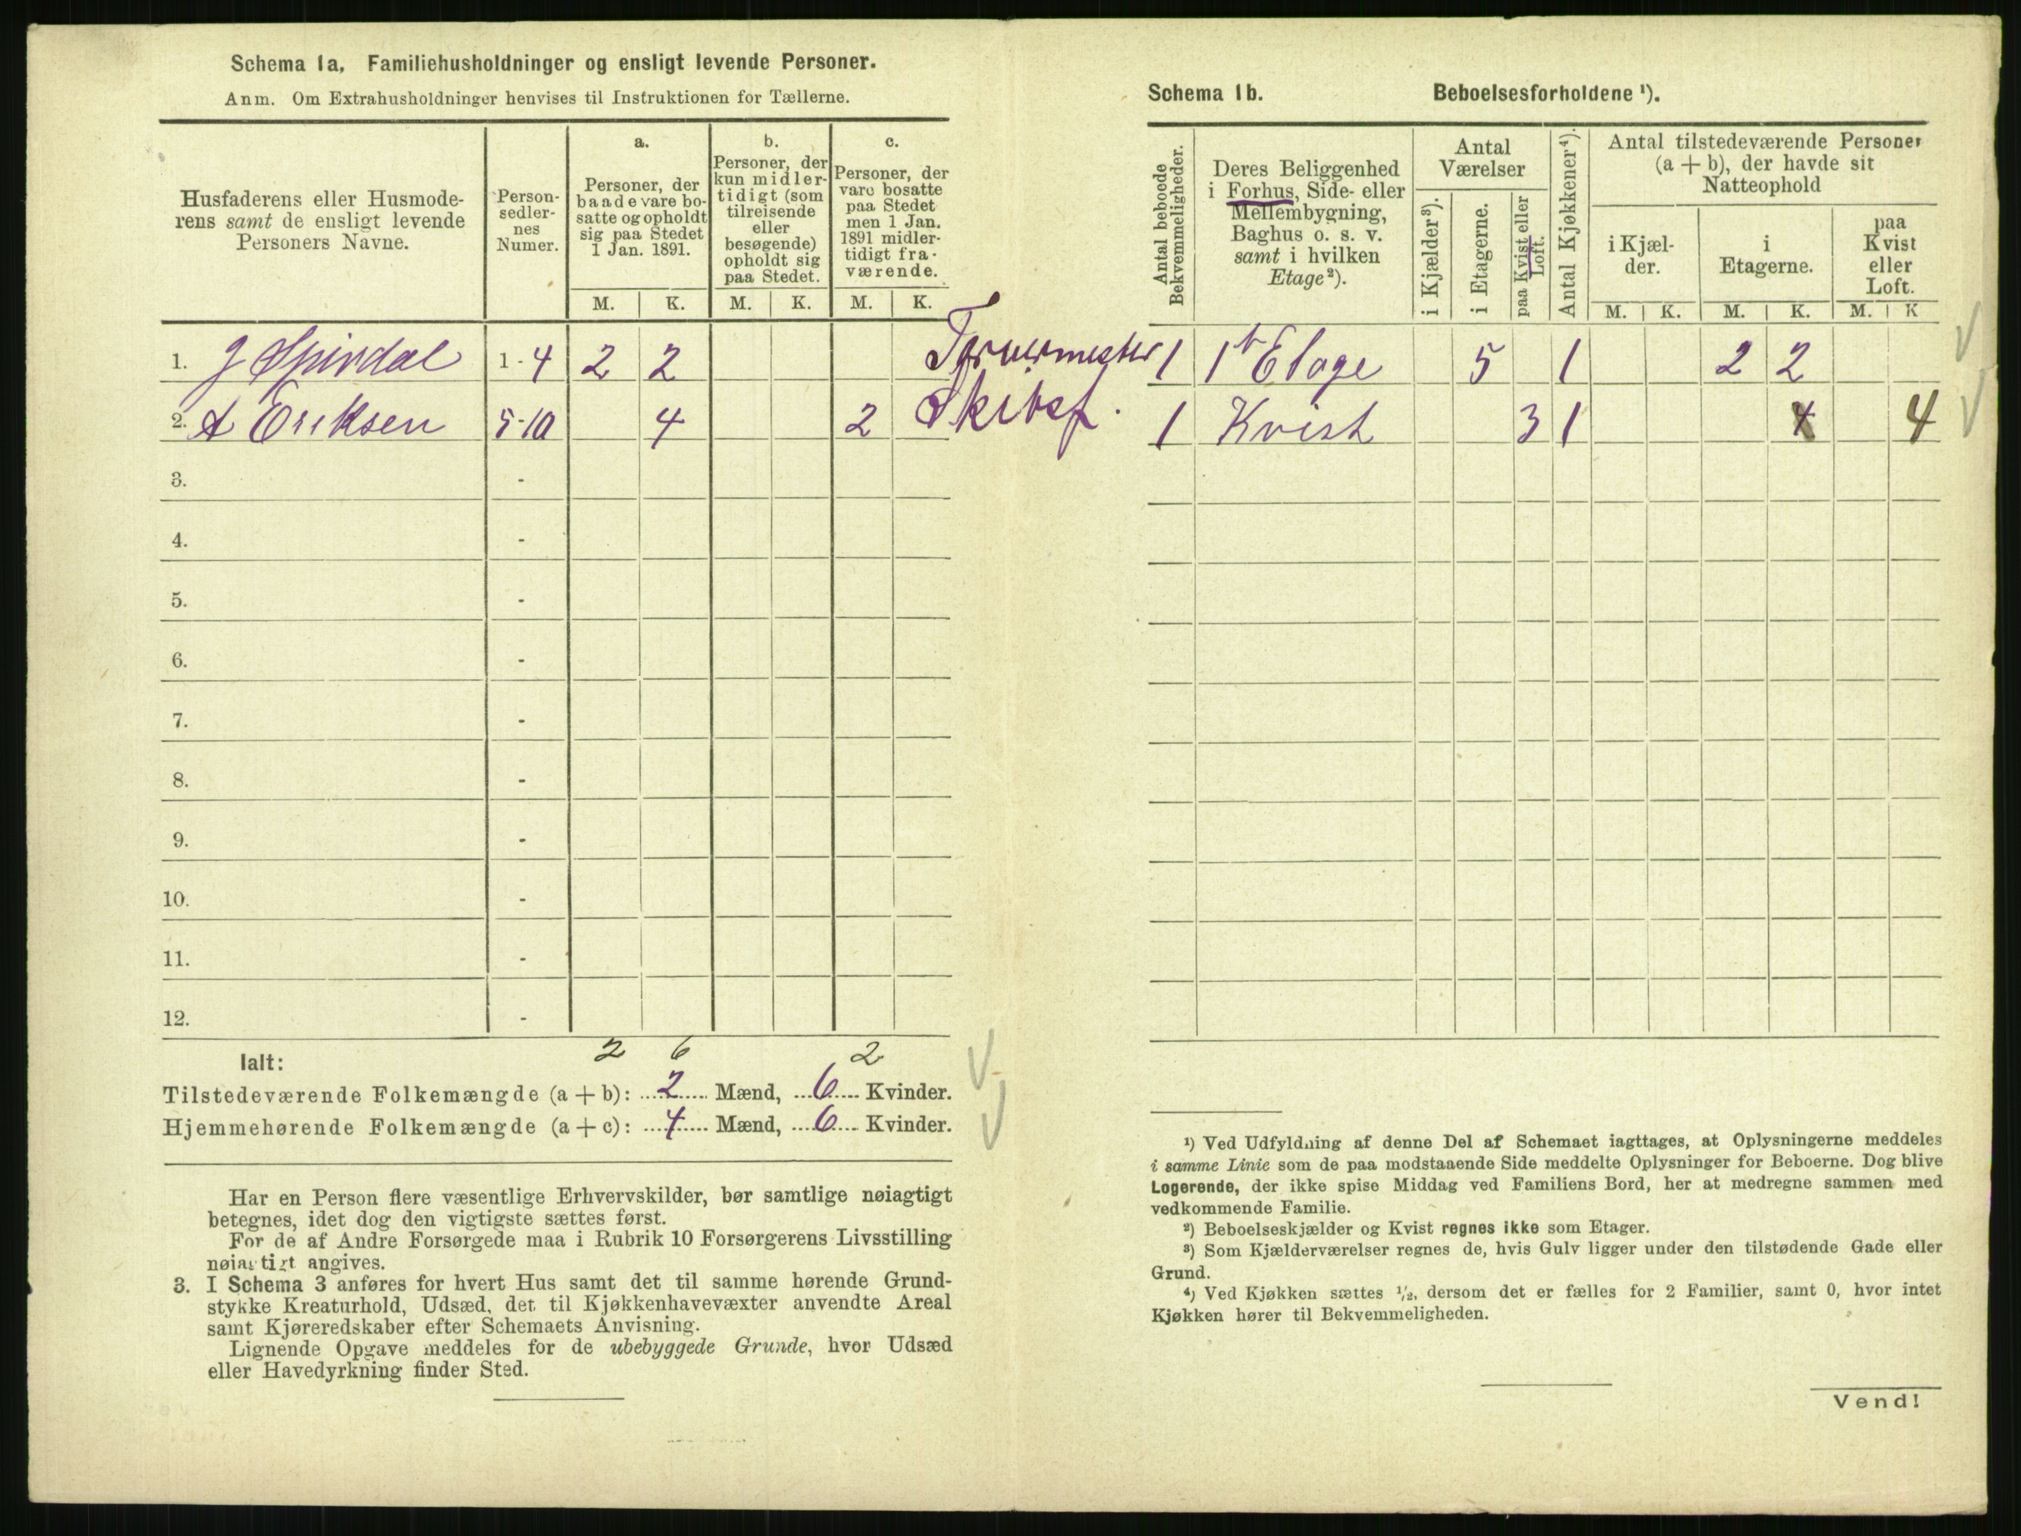 Schema 1a. Familiehusholdninger og ensligt levende Personer.
Anm. Om Extrahusholdninger henvises til Instruktionen for Tællerne.
Husfaderens eller Husmode-
rens samt de ensligt levende
Personers Navne.
Person-
sedler-
nes
Numer.
a.
Personer, der
baade vare bo-
satte og opholdt
sig paa Stedet
1 Jan. 1891.
b.
Personer, der
kun midler-
tidigt (som
tilreisende
eller
besøgende)
opholdt sig
paa Stedet.
c.
Personer, der
vare bosatte
paa Stedet
men 1 Jan.
1891 midler-
tidigt fra-
værende.
M. K. M. K. M. K.
1. J Spirdal 1-4 2 2
2. A Eriksen 5-10 4 2 Skibsf.
3. -
4. -
5. -
6. -
7. -
8. -
9. -
10. -
11. -
12. -
Ialt: 2 6 2
Tilstedeværende Folkemængde (a + b): 2 Mænd, 6 Kvinder.
Hjemmehørende Folkemængde (a + c): 4 Mænd, 6 Kvinder.
Har en Person flere væsentlige Erhvervskilder, bør samtlige nøiagtigt
betegnes, idet dog den vigtigste sættes først.
For de af Andre Forsørgede maa i Rubrik 10 Forsørgerens Livsstilling
nøiagtigt angives.
3. I Schema 3 anføres for hvert Hus samt det til samme hørende Grund-
stykke Kreaturhold, Udsæd, det til Kjøkkenhavevæxter anvendte Areal
samt Kjøreredskaber efter Schemaets Anvisning.
Lignende Opgave meddeles for de ubebyggede Grunde, hvor Udsæd
eller Havedyrkning finder Sted.
Schema 1b. Beboelsesforholdene ¹).
Antal beboede
Bekvemmeligheder.
Deres Beliggenhed
i Forhus, Side- eller
Mellembygning,
Baghus o. s. v.
samt i hvilken
Etage²).
Antal
Værelser
i Kjælder³).
i Etagerne.
paa Kvist eller
Loft.
Antal Kjøkkener⁴).
Antal tilstedeværende Personer
(a + b), der havde sit
Natteophold
i Kjæl-
der.
i
Etagerne.
paa
Kvist
eller
Loft.
M. K. M. K. M. K
1 1st Etage 5 1 2 2
1 Kvist 3 1 4 4
¹) Ved Udfyldning af denne Del af Schemaet iagttages, at Oplysningerne meddeles
i samme Linie som de paa modstaaende Side meddelte Oplysninger for Beboerne. Dog blive
Logerende, der ikke spise Middag ved Familiens Bord, her at medregne sammen med
vedkommende Familie.
²) Beboelseskjælder og Kvist regnes ikke som Etager.
³) Som Kjælderværelser regnes de, hvis Gulv ligger under den tilstødende Gade eller
Grund.
⁴) Ved Kjøkken sættes ¹/₂, dersom det er fælles for 2 Familier, samt 0, hvor intet
Kjøkken hører til Bekvemmeligheden.
Vend!